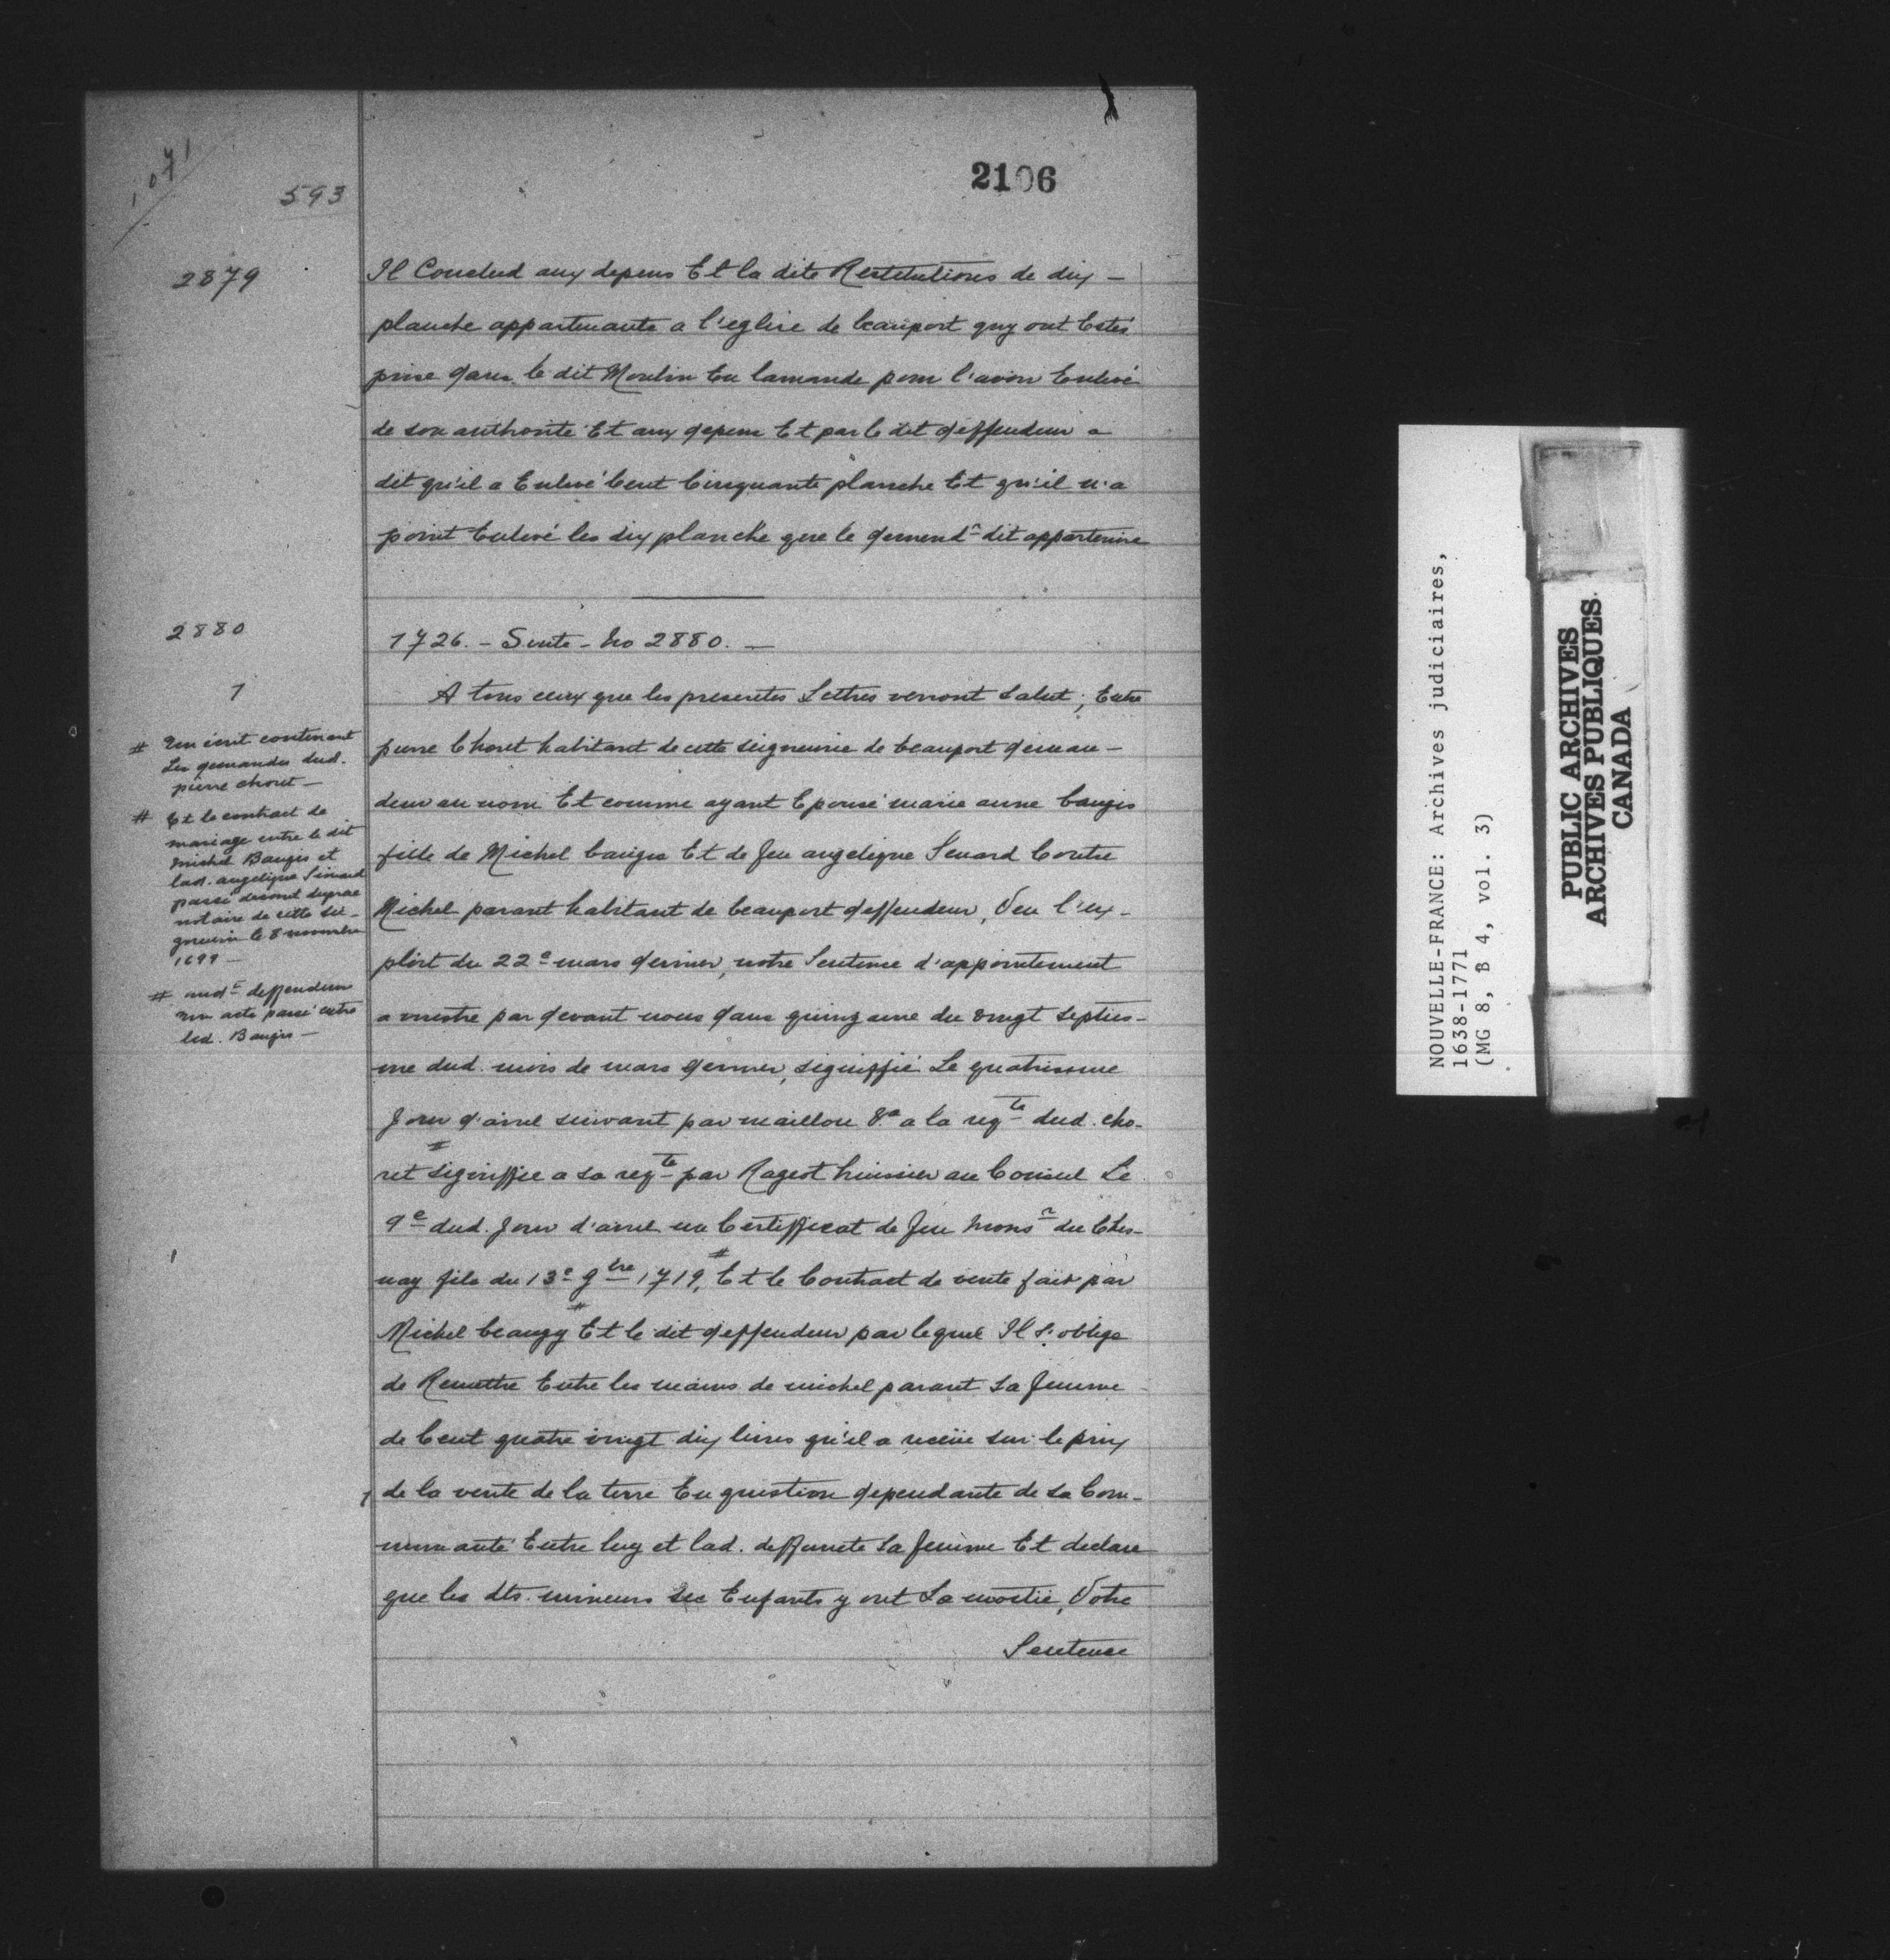 1071
593
2106
2879
Il Conclud aux depens Et la dite Restitutions de dix -
planche appartenante a l'eglise de beauport quy ont Estés
prise dans le dit Moulin En lamande pour l'avoir Enlevé
de son authorité Et aux depens Et par le dit deffendeur a
dit qu'il a Enlevé Cent Cinquante planche Et qu'il n'a
point Enlevé les dix planche que le demendr dit appartenire
2880
1726. - Suite - No 2880. -
1
A tous ceux que les presentes Lettres verront Salut ; Entre
pierre Choret habitant de cette seigneurie de beauport deman -
deur au nom Et comme ayant Epousé marie anne baugis
fille de Michel baugis Et de feu angelique Senard Contre
Michel parant habitant de beauport deffendeur, Veu l'ex -
ploit du 22e mars dernier, notre Sentence d'appointement
a mestre par devant nous dans quinzaine du vingt septies -
me dud. mois de mars dernier, signiffié Le quatriesme
Jour d'avril suivant par maillou Sr a la reqte dud. cho -
ret # signiffiee a sa reqte par Rageot huissier au Conseil Le
9e dud. Jour d'avril un Certifficat de feu Monsr du Ches -
nay fils du 13e 9bre 1719, # Et le Contract de vente fait par
Michel beaugy # Et le dit deffendeur par lequel Il s'oblige
de Remettre Entre les mains de michel parant La somme
de Cent quatre vingt dix livres qu'il a receüe sur le prix
de la vente de la terre En question dependante de la Com -
munauté Entre luy et lad. deffuncte sa femme Et declare
que les dts. mineurs ses Enfants y ont La moitié, Votre
Sentence
# Un écrit contenant
Les demandes dud.
pierre choret -
# Et le contract de
mariage entre le dit
michel Baugis et
lad. angelique Simard
passé devant duprac
notaire de cette sei -
gneurie le 8 novembre
1699 -
# aud. deffendeur
un acte passé entre
led. Baugis -
NOUVELLE-FRANCE: Archives judiciaires,
1638-1771
(MG 8, B 4, vol. 3)
PUBLIC ARCHIVES
ARCHIVES PUBLIQUES
CANADA